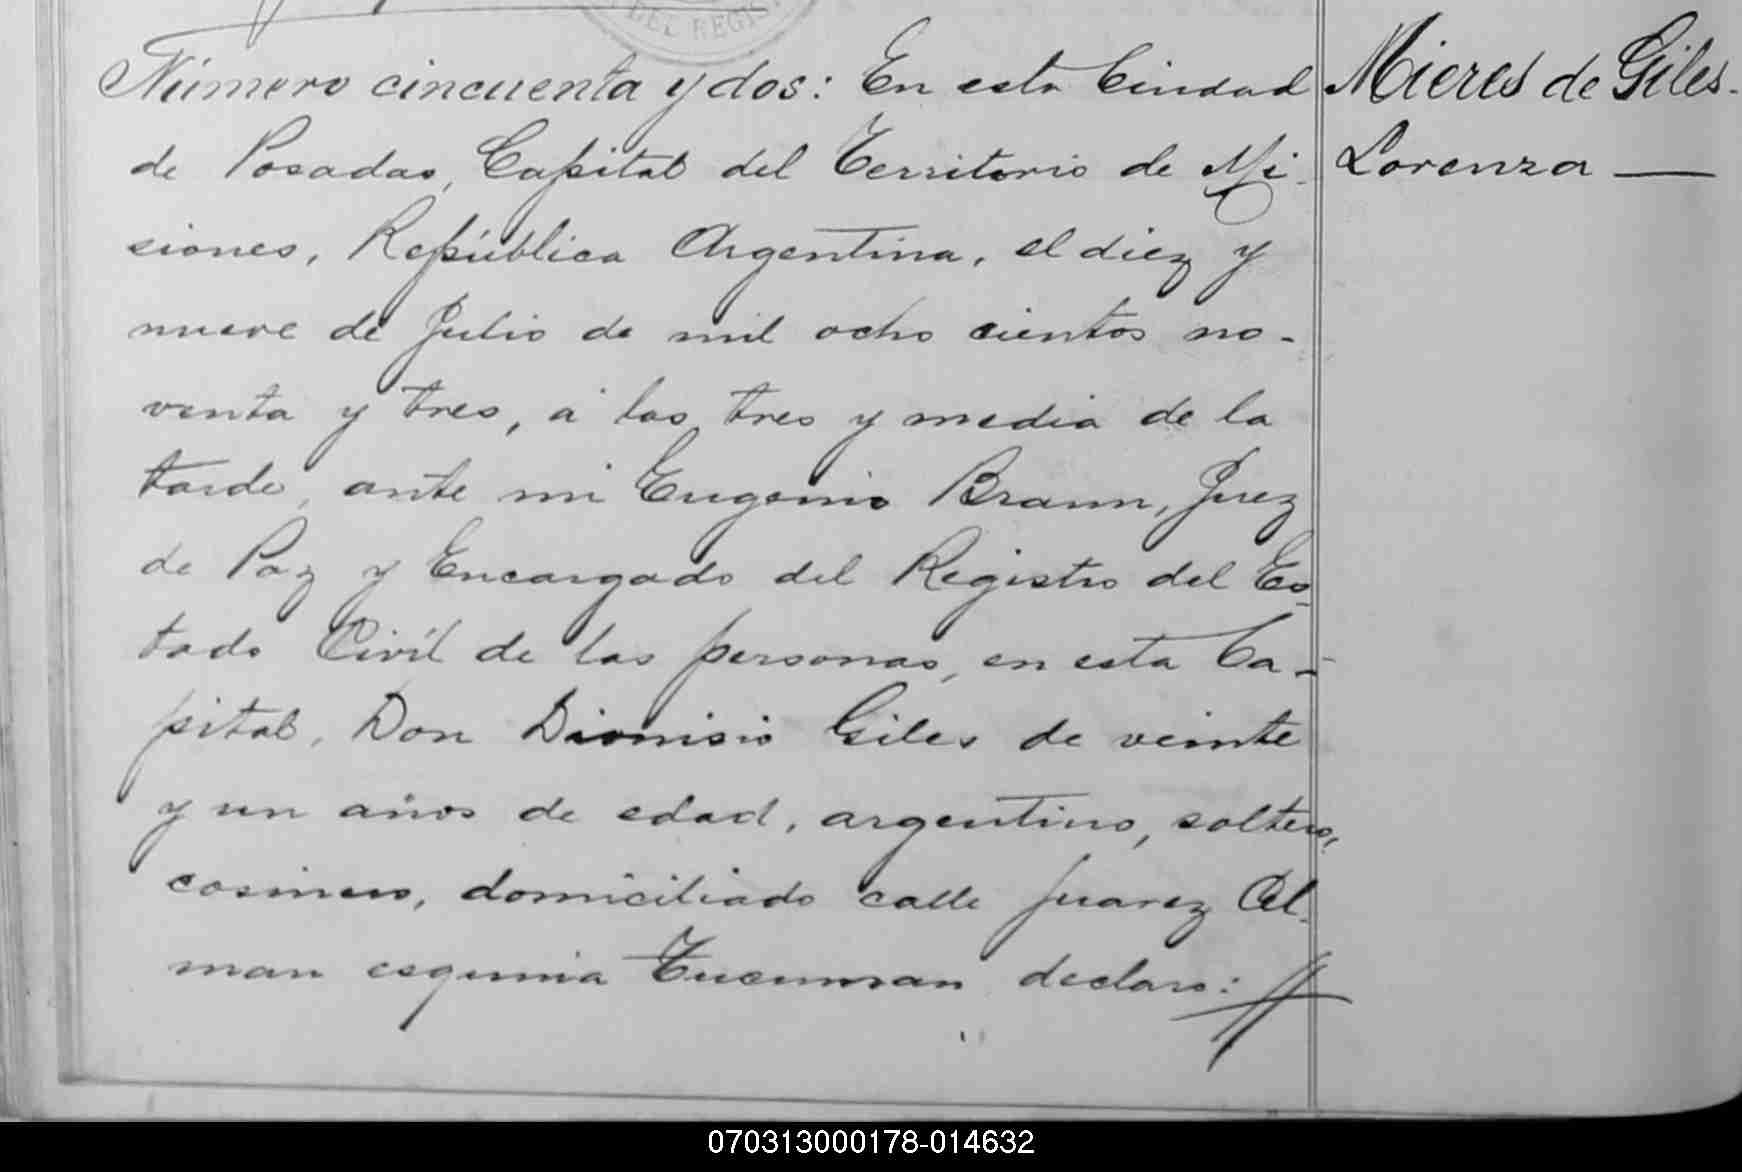 DEL REGIS
Número cincuenta y dos: En esta Ciudad
de Posadas, Capital del Territorio de Mi-
siones, República Argentina, el diez y
nueve de Julio de mil ocho cientos no-
venta y tres, á las tres y media de la
tarde, ante mi Eugenio Braun, Juez
de Paz y Encargado del Registro del Es-
tado Civíl de las personas, en esta Ca-
pital, Don Dionisio Giles de veinte
y un años de edad, argentino, soltero,
cosinero, domiciliado calle Juarez Cel-
man esquinia Tucuman declaro:
Mieres de Giles-
Lorenza —
070313000178-014632